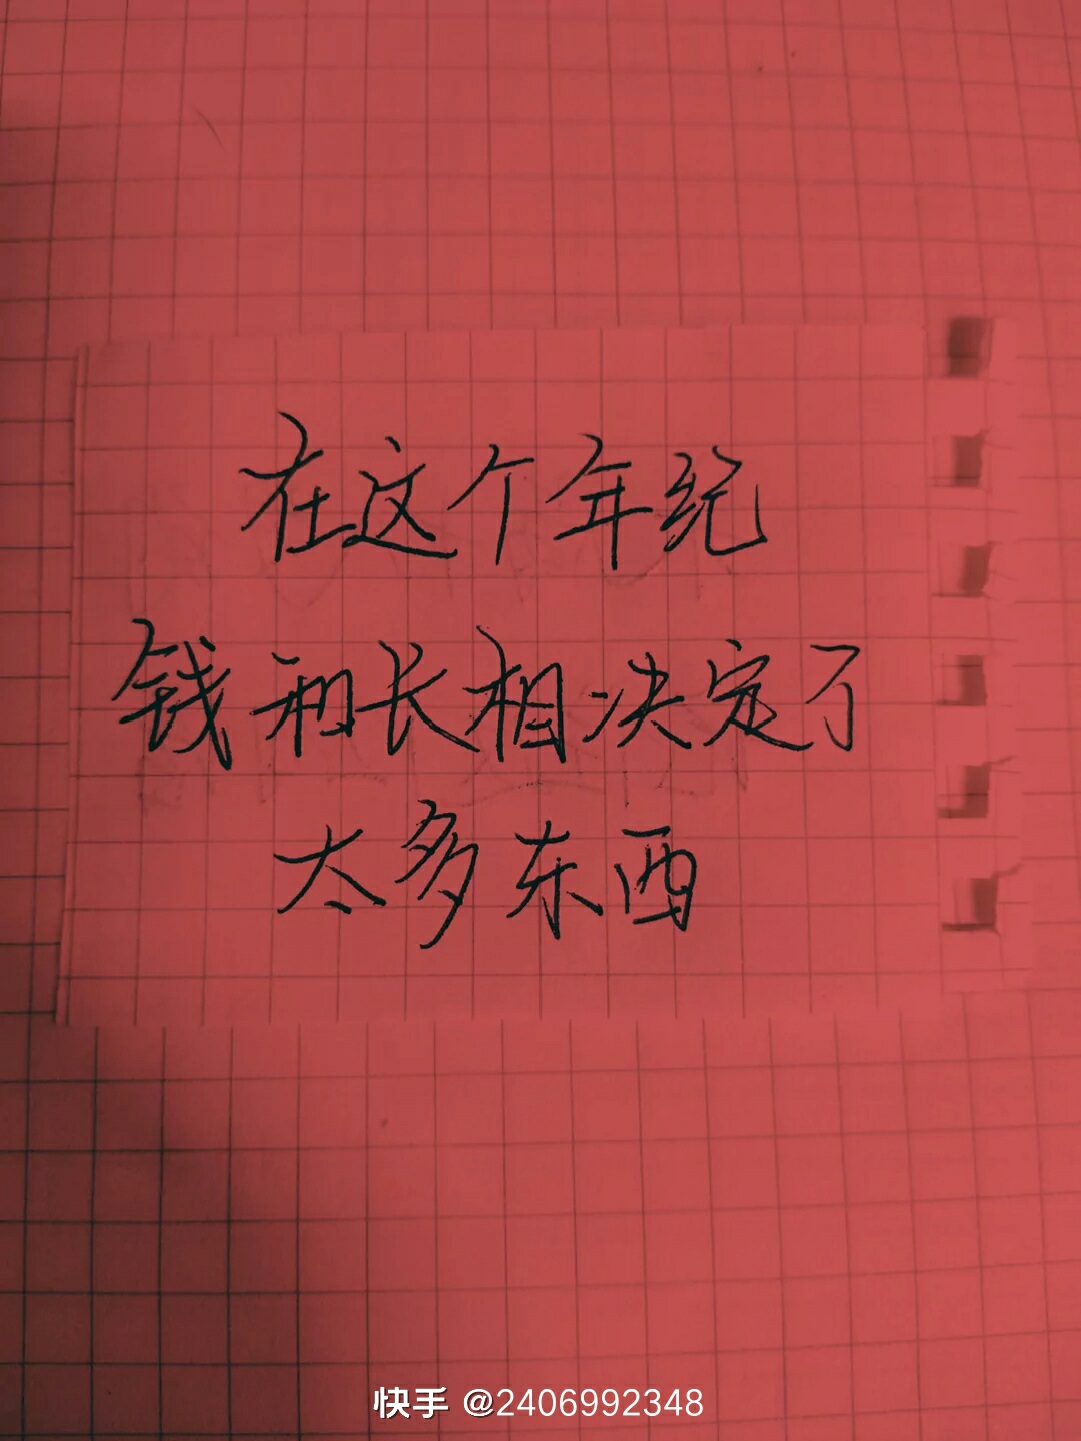 在这个年纪
钱和长相决定了
太多东西
快手 @2406992348